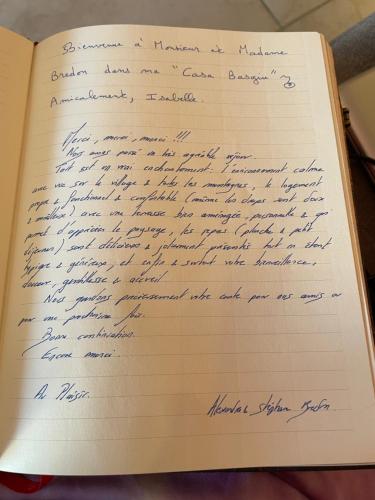 Bienvenue à Monsieur et Madame
Bredon dans ma "Casa Basqui"
Amicalement, Isabelle.
Merci, merci, merci !!!
Nous avons passé un très agréable séjour.
Tout est un vrai enchantement : l'environnement calme
avec vue sur le village & toutes les montagnes, le logement
propre & fonctionnel & confortable (même les draps sont doux
& moelleux) avec une terrasse bien aménagée, personnelle & qui
permet d'apprécier le paysage, les repas (planche & petit
déjeuner) sont délicieux & joliment présentés tout en étant
typique & généreux, et enfin & surtout votre bienveillance,
douceur, gentillesse & accueil.
Nous gardons précieusement votre carte pour nos amis ou
pour une prochaine fois.
Bonne continuation.
Encore merci.
Au Plaisir.
Alexandra & Stéphane Bredon